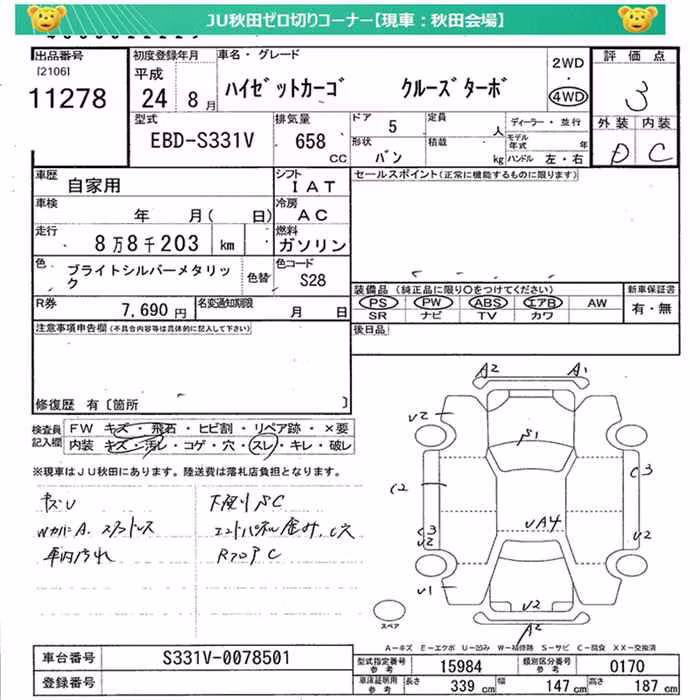 JU秋田ゼロ切りコーナー【現車：秋田会場】
出品番号 初度登録年月 車名・グレード 2WD 評価点
[2106] 平成 ・
11278 24 8月 ハイゼットカーゴ クルーズターボ 4WD 3
型式 排気量 ドア 5 定員 人 ディーラー・並行 外装 内装
EBD-S331V 658 CC 形状 バン 積載 kg モデル年式 年 ハンドル 左・右 D C
車歴 自家用 シフト IAT セールスポイント(正常に機能するものに限ります)
車検 年 月( 日) 冷房 AC
走行 8万8千203 km 燃料 ガソリン
色 ブライトシルバーメタリック 色替 色コード S28
装備品(純正品に限り○をつけてください) 新車保証書
R券 7,690円 名変通知期限 月 日 PS PW ABS エアB AW 有・無
SR ナビ TV カワ
注意事項申告欄(不具合内容等は具体的に記入して下さい) 後日品
修復歴 有〔箇所 〕
検査員記入欄 FW キズ・飛石・ヒビ割・リペア跡・×要
内装 キズ・汚レ・コゲ・穴・スレ・キレ・破レ
※現車はJU秋田にあります。陸送費は落札店負担となります。
キズU 下廻りSC
Wカバー A. スタッドレス エンドパネル歪み、C穴
車内汚れ RフロアC
A2 A1
U2
S1
C2 C3
C3 UA4
U2 U2
U1 U2
A2
スペア
A－キズ E－エクボ U－凹み W－補修跡 S－サビ C－腐食 XX－交換済
車台番号 S331V-0078501 型式指定番号 参考 15984 類別区分番号 参考 0170
登録番号 車庫証明用 参考 長さ 339cm 幅 147cm 高さ 187cm